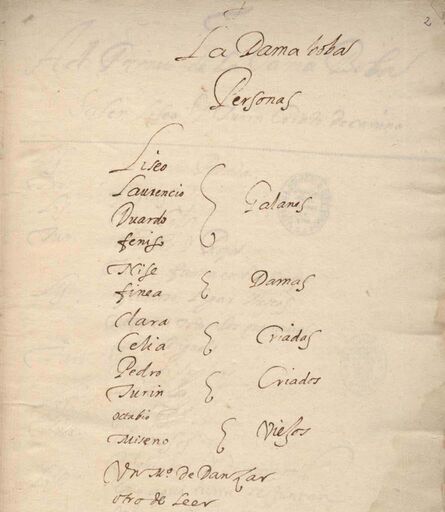 2
La Dama boba
Personas
Liseo
Laurencio
Duardo
feniso
Galanes
Nise
finea
Damas
Clara
Celia
Criadas
Pedro
Turin
Criados
Octabio
Miseno
Viejos
Un Mº. de Danzar
otro de Leer